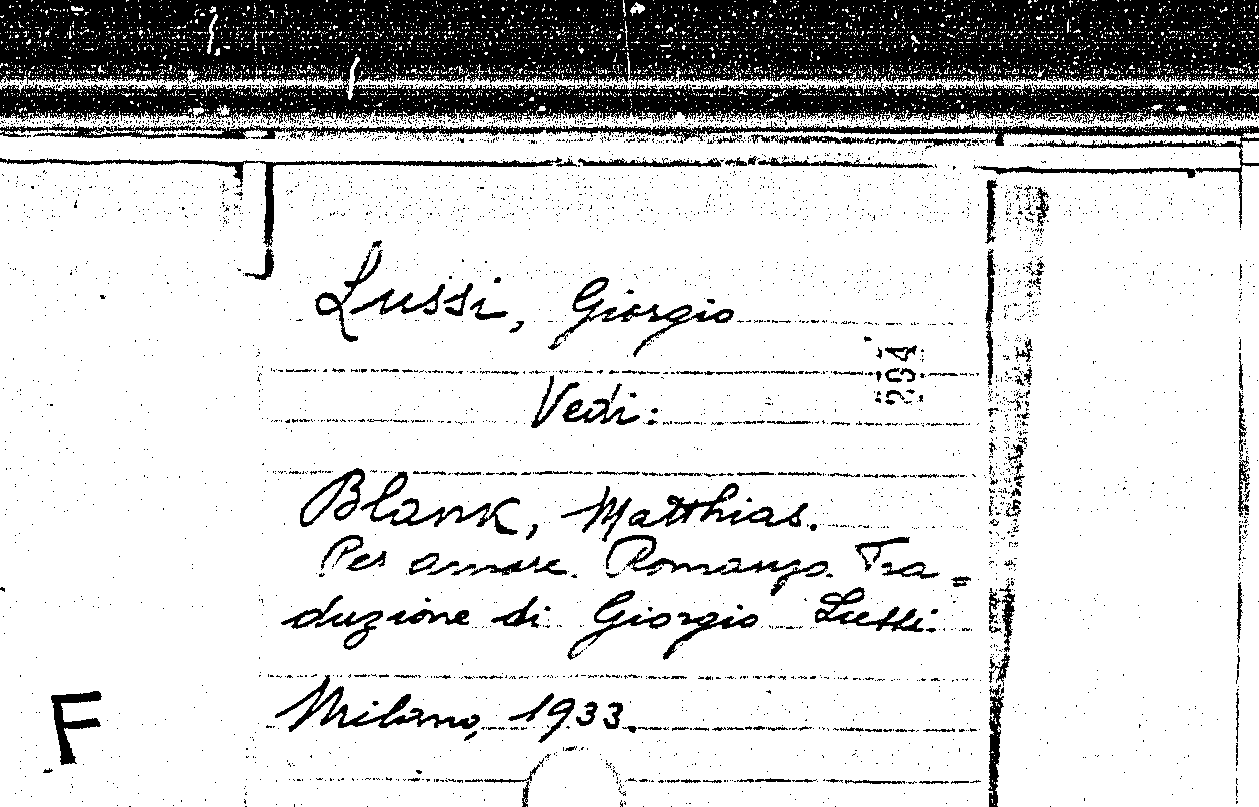 Lussi, Giorgio
294
Vedi:
Blank, Matthias.
Per amare. Romanzo. Tra=
duzione di Giorgio Lussi.
Milano, 1933.
F